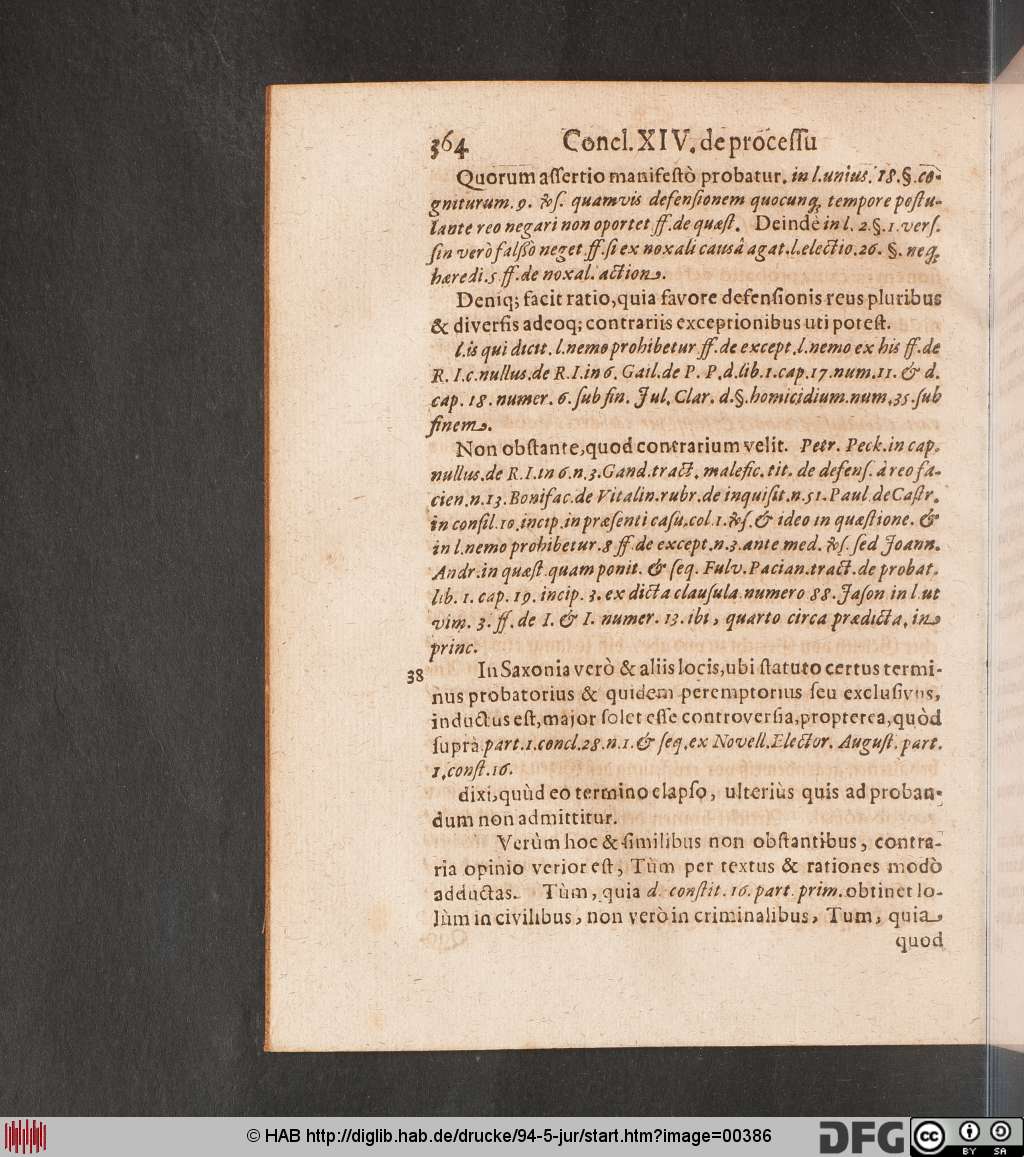 364 Concl. XIV. de processu
Quorum assertio manifestò probatur. in l. unius. 18. §. co-
gniturum. 9. ff. quamvis defensionem quocunq; tempore postu-
lante reo negari non oportet ff. de quæst. Deinde in l. 2. §. 1. vers.
sin verò falso neget ff. si ex noxali causâ agat. l. electio. 26. §. neq;
hæredi. 5 ff. de noxal. action.
Deniq; facit ratio, quia favore defensionis reus pluribus
& diversis adeoq; contrariis exceptionibus uti potest.
l. is qui dicit. l. nemo prohibetur ff. de except. l. nemo ex his ff. de
R. I. c. nullus. de R. I. in 6. Gail. de P. P. d. lib. 1. cap. 17. num. 11. & d.
cap. 18. numer. 6. sub fin. Jul. Clar. d. §. homicidium. num. 35. sub
finem.
Non obstante, quod contrarium velit. Petr. Peck. in cap.
nullus. de R. I. in 6. n. 3. Gand. tract. malefic. tit. de defens. à reo fa-
cien. n. 13. Bonifac. de Vitalin. rubr. de inquisit. n. 51. Paul de Castr.
in consil. 10. incip. in præsenti casu. col. 1. & ideo in quæstione. &
in l. nemo prohibetur. 8 ff. de except. n. 3. ante med. sed Joann.
Andr. in quæst. quam ponit. & seq. Fulv. Pacian. tract. de probat.
lib. 1. cap. 19. incip. 3. ex dicta clausula numero 88. Jason in l. ut
vim. 3. ff. de I. & I. numer. 13. ibi, quarto circa prædicta, in
princ.
38 In Saxonia verò & aliis locis, ubi statuto certus termi-
nus probatorius & quidem peremptorius seu exclusivus,
inductus est, major solet esse controversia, propterea, quòd
suprà part. 1. concl. 28. n. 1. & seq. ex Novell. Elector. August. part.
1. const. 16.
dixi, quùd eo termino elapso, ulteriùs quis ad proban-
dum non admittitur.
Verùm hoc & similibus non obstantibus, contra-
ria opinio verior est, Tùm per textus & rationes modò
adductas. Tùm, quia d. constit. 16. part. prim. obtinet so-
lùm in civilibus, non verò in criminalibus, Tum, quia
quod
© HAB http://diglib.hab.de/drucke/94-5-jur/start.htm?image=00386
DFG
cc BY SA